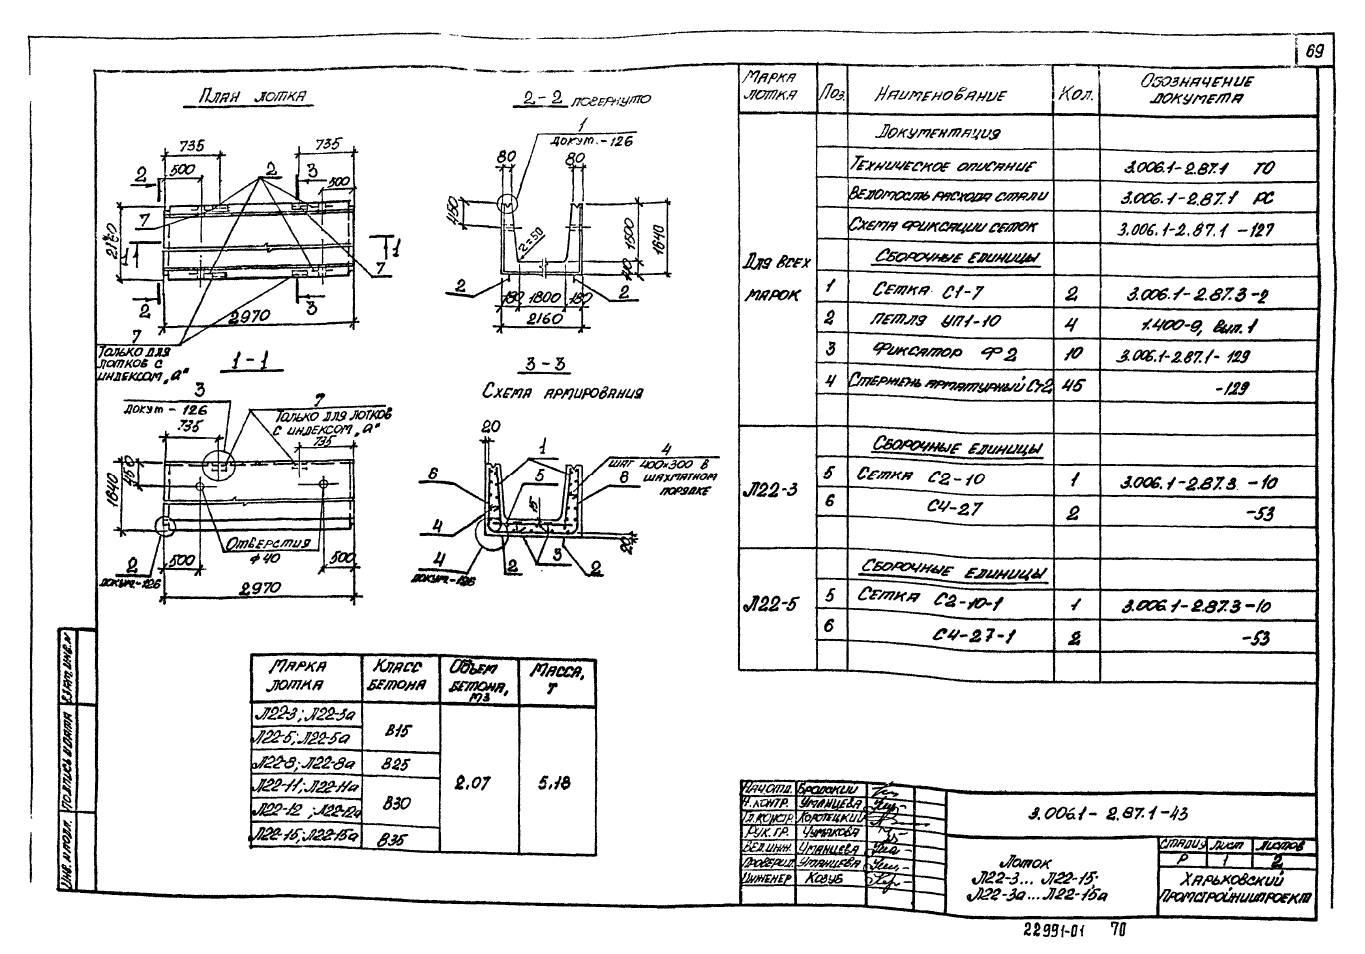 69
План лотка
735
735
2
500
2
3
500
7
2160
1
1
7
2
3
2970
7
Только для
лотков с
индексом „а"
2-2 повернуто
1
докум.-126
80
80
450
R=50
1500
1640
140
2
2
180
1800
180
2160
1-1
3
докум-126
7
Только для лотков
с индексом „а"
735
735
450
1640
Отверстия
ф40
2
докум-126
500
500
2970
3-3
Схема армирования
20
1
4
шаг 400×300 в
шахматном
порядке
6
5
8
4
4
докум-126
2
3
2
20
Марка
лотка
Поз.
Наименование
Кол.
Обозначение
документа
Документация
Техническое описание 3.006.1-2.87.1 ТО
Ведомость расхода стали 3.006.1-2.87.1 РС
Схема фиксации сеток 3.006.1-2.87.1 -127
Для всех
марок
Сборочные единицы
1 Сетка С1-7 2 3.006.1-2.87.3-2
2 Петля УП1-10 4 1.400-9, вып.1
3 Фиксатор Ф2 10 3.006.1-2.87.1- 129
4 Стержень арматурный Ст2 45 -129
Сборочные единицы
Л22-3 5 Сетка С2-10 1 3.006.1-2.87.3 -10
6 С4-27 2 -53
Сборочные единицы
Л22-5 5 Сетка С2-10-1 1 3.006.1-2.87.3-10
6 С4-27-1 2 -53
Марка
лотка
Класс
бетона
Объем
бетона,
м3
Масса,
т
Л22-3; Л22-3а
Л22-5; Л22-5а
В15
Л22-8; Л22-8а В25
Л22-11; Л22-11а
Л22-12 ; Л22-12а
В30
Л22-15; Л22-15а В35
2.07
5.18
Нач.отд. Бродский
Н.контр. Уманцева
Гл.констр. Коротецкий
Рук.гр. Чумакова
Вед.инж. Уманцева
Проверил Уманцева
Инженер Козуб
3.006.1- 2.87.1-43
Лоток
Л22-3... Л22-15;
Л22-3а...Л22-15а
Стадия Лист Листов
Р 1 2
Харьковский
Промстройниипроект
Инв. № подл.
Подпись и дата
Взам. инв. №
22991-01 70